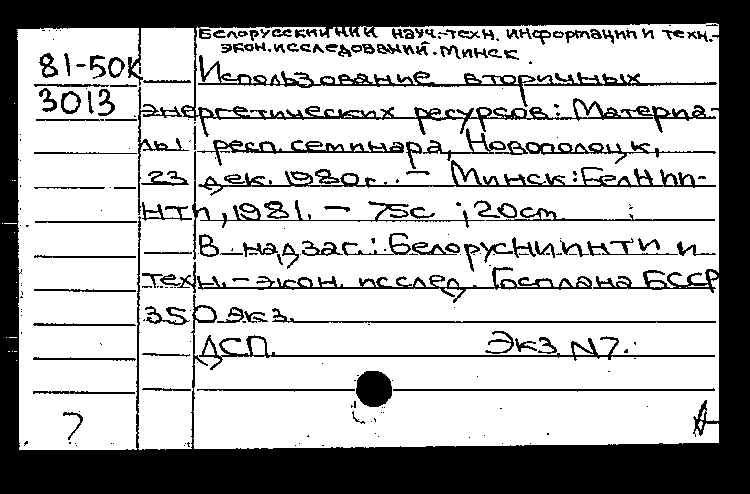 Белорусский НИИ науч.-техн. информации и техн.-
экон. исследований. Минск.
81-50К
3013
Использование вторичных
энергетических ресурсов: Материа-
лы респ. семинара, Новополоцк,
23 дек. 1980г.. – Минск: БелНИИ-
НТИ, 1981. – 75с ; 20см.
В надзаг.: Белорус НИИНТИ и
техн.-экон. исслед. Госплана БССР
350 экз.
ДСП. Экз. N7.
7